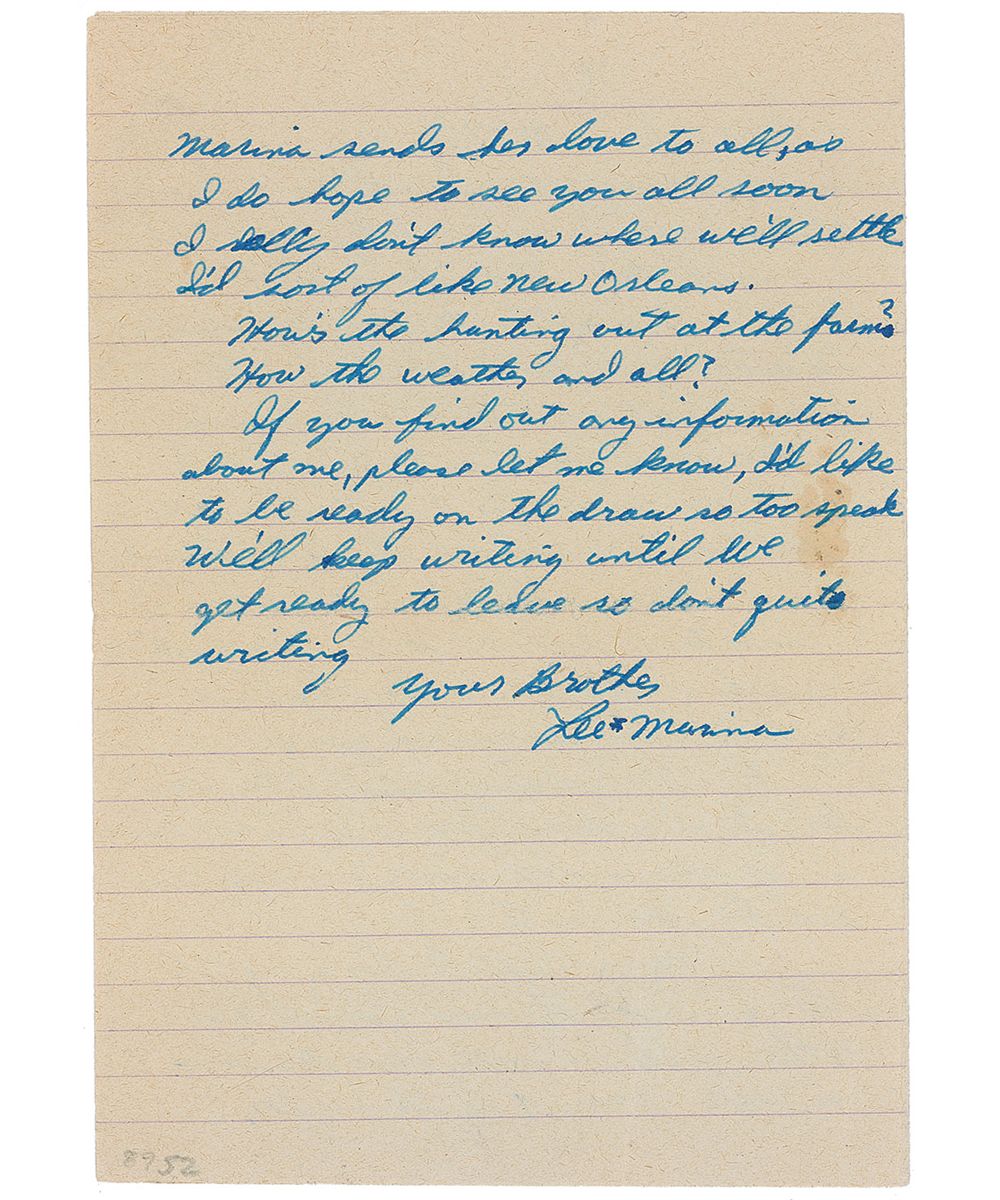 Marina sends her love to all, as
I do hope to see you all soon
I really don't know where we'll settle
I'd sort of like New Orleans.
How's the hunting out at the farm?
How the weather and all?
If you find out any information
about me, please let me know, I'd like
to be ready on the draw so too speak
We'll keep writing until We
get ready to leave so don't quit
writing
Your Brother
Lee * Marina
8752